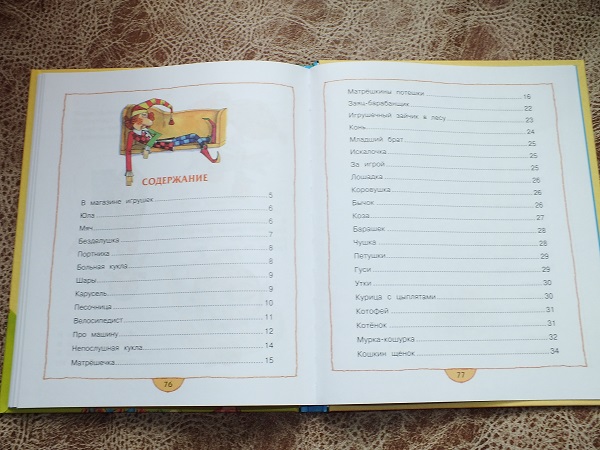 СОДЕРЖАНИЕ
В магазине игрушек 5
Юла 6
Мяч 6
Безделушка 7
Портниха 8
Больная кукла 8
Шары 9
Карусель 9
Песочница 10
Велосипедист 11
Про машину 12
Непослушная кукла 14
Матрёшечка 15
76
Матрёшкины потешки 16
Заяц-барабанщик 22
Игрушечный зайчик в лесу 23
Конь 24
Младший брат 25
Искалочка 25
За игрой 25
Лошадка 26
Коровушка 26
Бычок 26
Коза 27
Барашек 28
Чушка 28
Петушки 29
Гуси 29
Утки 30
Курица с цыплятами 30
Котофей 31
Котёнок 31
Мурка-кошурка 32
Кошкин щенок 34
77